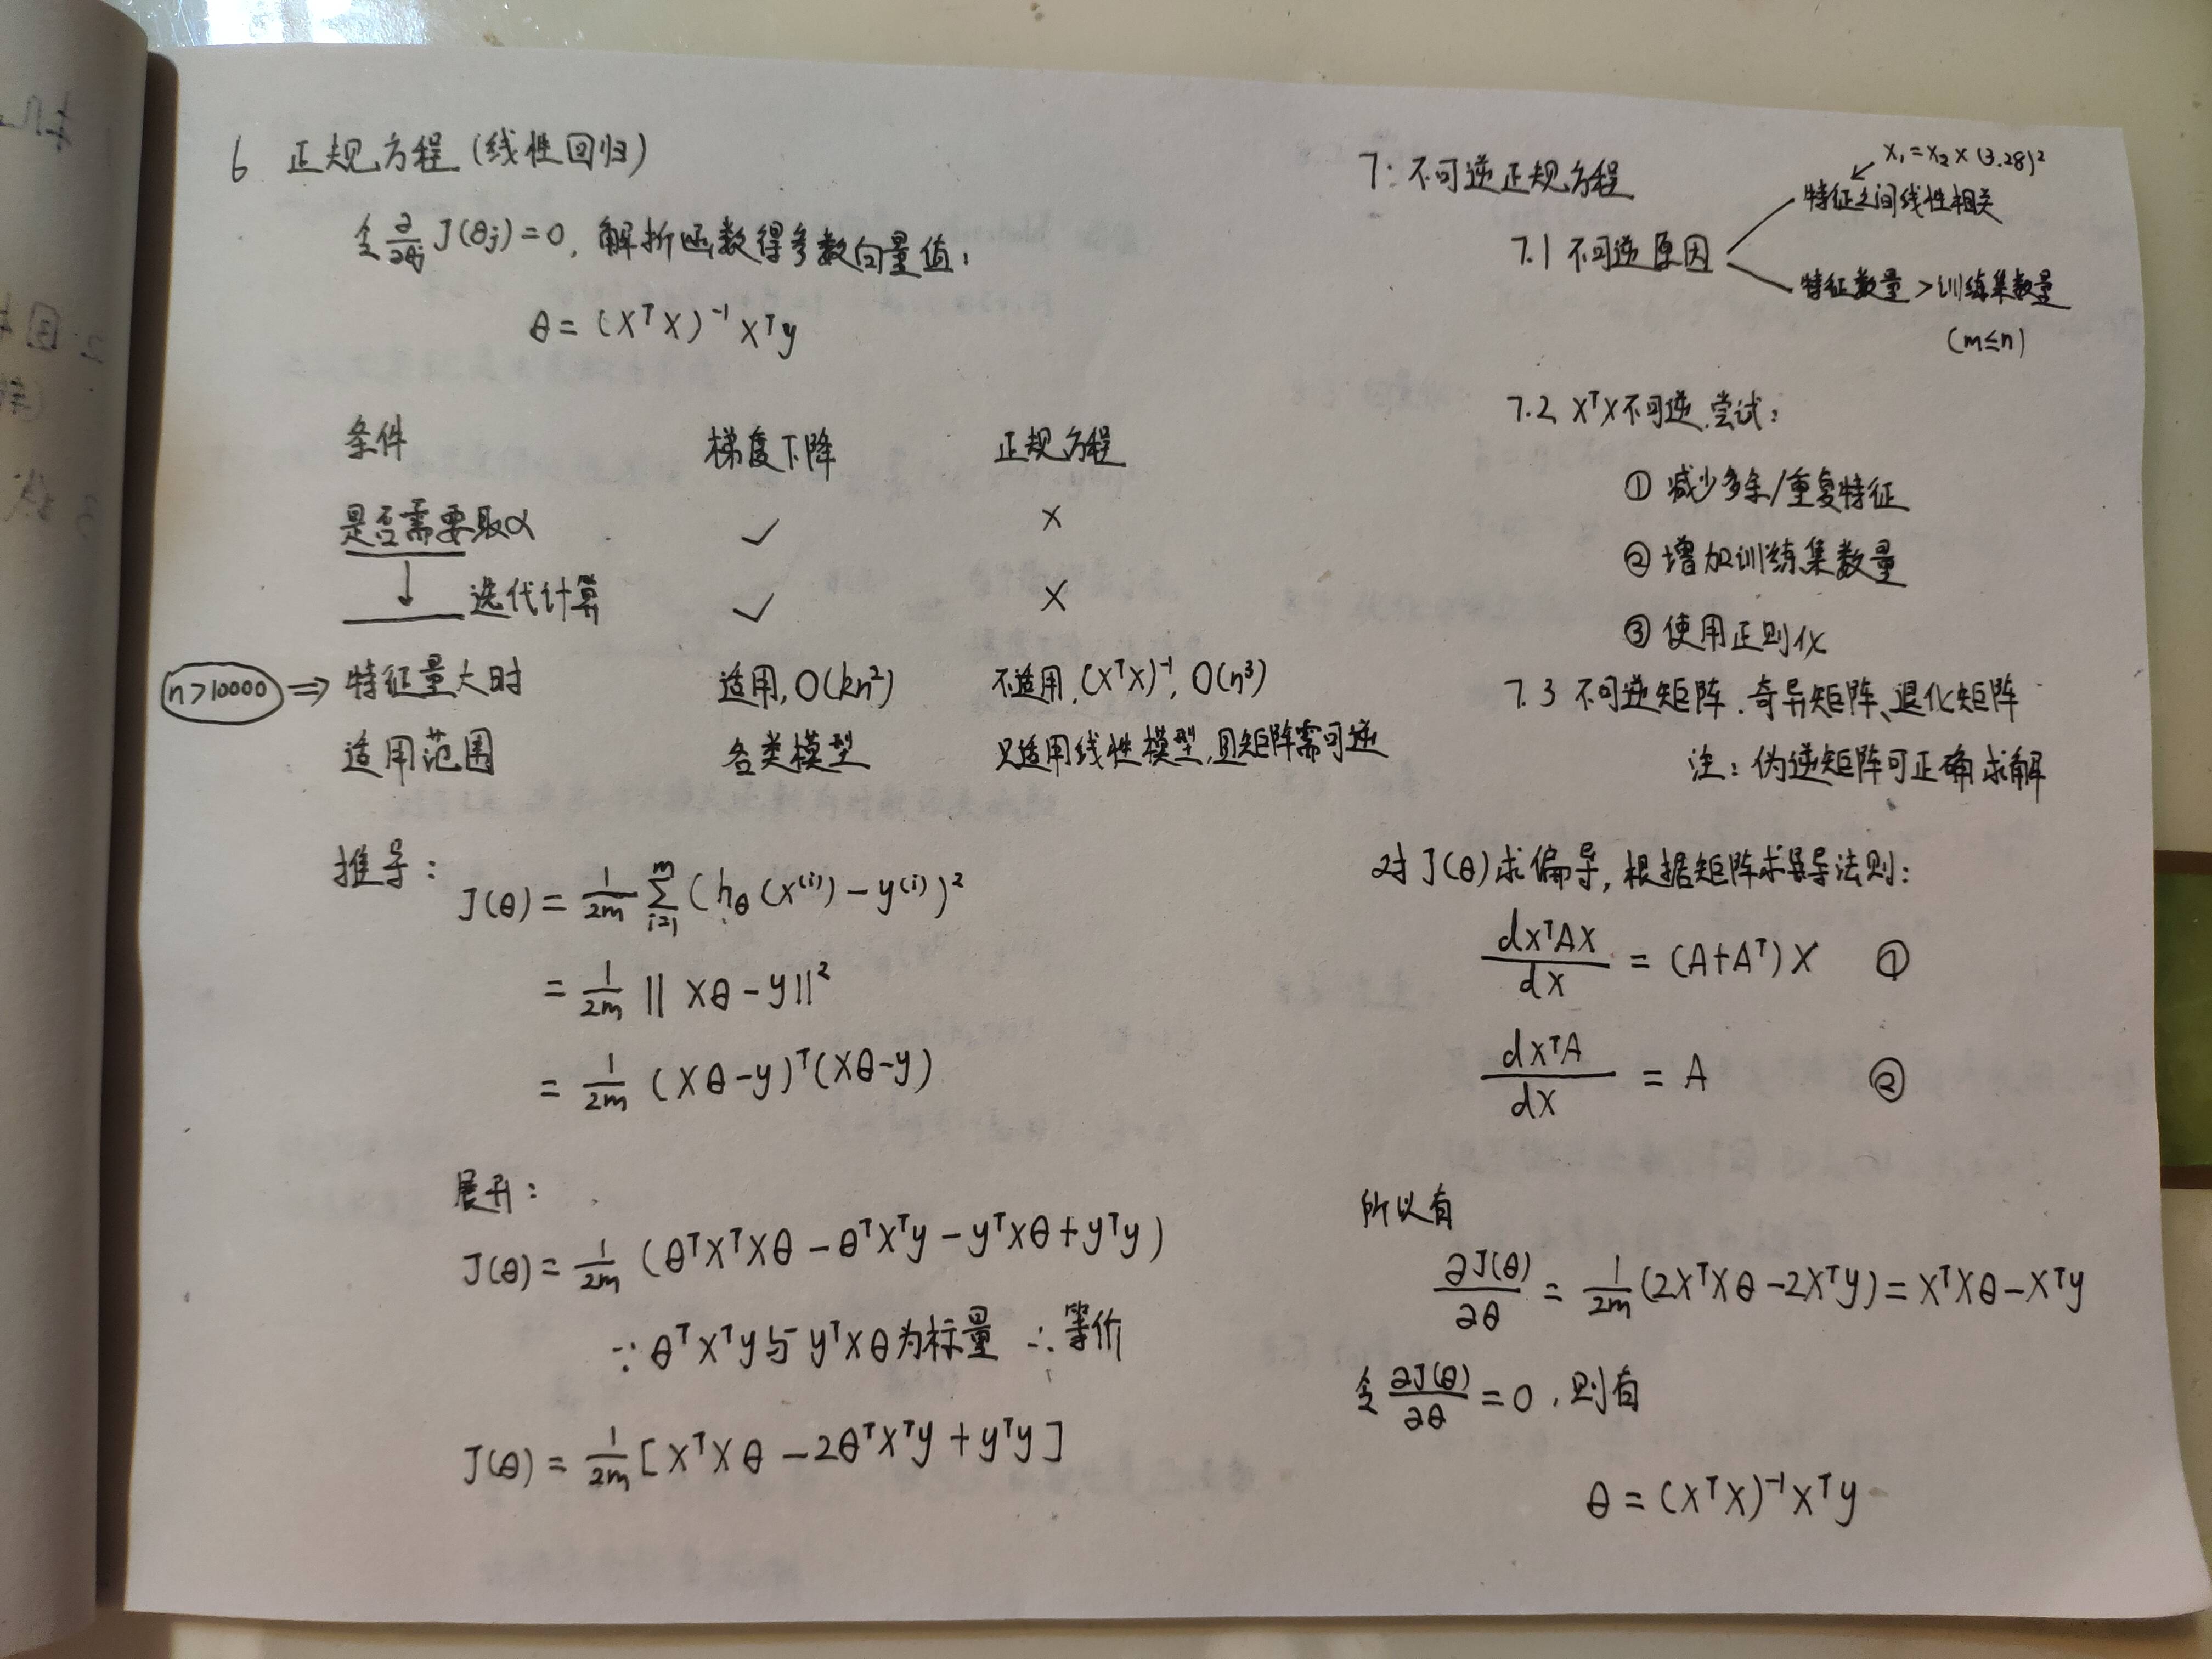 6 正规方程(线性回归)
令 ∂/∂θj J(θj)=0, 解析函数得参数向量值:
θ = (XᵀX)⁻¹Xᵀy
条件 梯度下降 正规方程
是否需要取α ✓ ×
↓ 迭代计算 ✓ ×
n>10000 ⇒ 特征量大时 适用, O(kn²) 不适用, (XᵀX)⁻¹, O(n³)
适用范围 各类模型 只适用线性模型,且矩阵需可逆
推导:
J(θ) = 1/2m ∑ᵢ₌₁ᵐ (hθ(x⁽ⁱ⁾) − y⁽ⁱ⁾)²
= 1/2m ‖Xθ−y‖²
= 1/2m (Xθ−y)ᵀ(Xθ−y)
展开:
J(θ) = 1/2m (θᵀXᵀXθ − θᵀXᵀy − yᵀXθ + yᵀy)
∵ θᵀXᵀy与yᵀXθ为标量 ∴ 等价
J(θ) = 1/2m [XᵀXθ − 2θᵀXᵀy + yᵀy]
7: 不可逆正规方程
x₁=x₂×(3.28)²
特征之间线性相关
7.1 不可逆原因
特征数量>训练集数量
(m≤n)
7.2 XᵀX不可逆,尝试:
① 减少多余/重复特征
② 增加训练集数量
③ 使用正则化
7.3 不可逆矩阵、奇异矩阵、退化矩阵
注: 伪逆矩阵可正确求解
对J(θ)求偏导, 根据矩阵求导法则:
dXᵀAX/dX = (A+Aᵀ)X ①
dXᵀA/dX = A ②
所以有
∂J(θ)/∂θ = 1/2m (2XᵀXθ − 2Xᵀy) = XᵀXθ − Xᵀy
令 ∂J(θ)/∂θ = 0, 则有
θ = (XᵀX)⁻¹Xᵀy